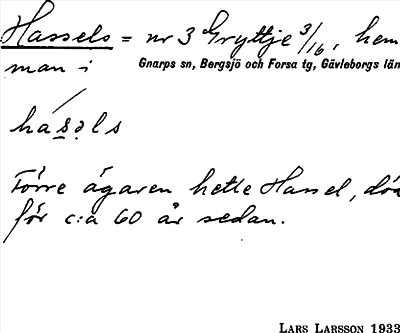 Hassels = nr 3 Gryttje 3/16, hem
man i
Gnarps sn, Bergsjö och Forsa tg, Gävleborgs län
hásəls
Förre ägaren hette Hassel, död
för c:a 60 år sedan.
LARS LARSSON 1933